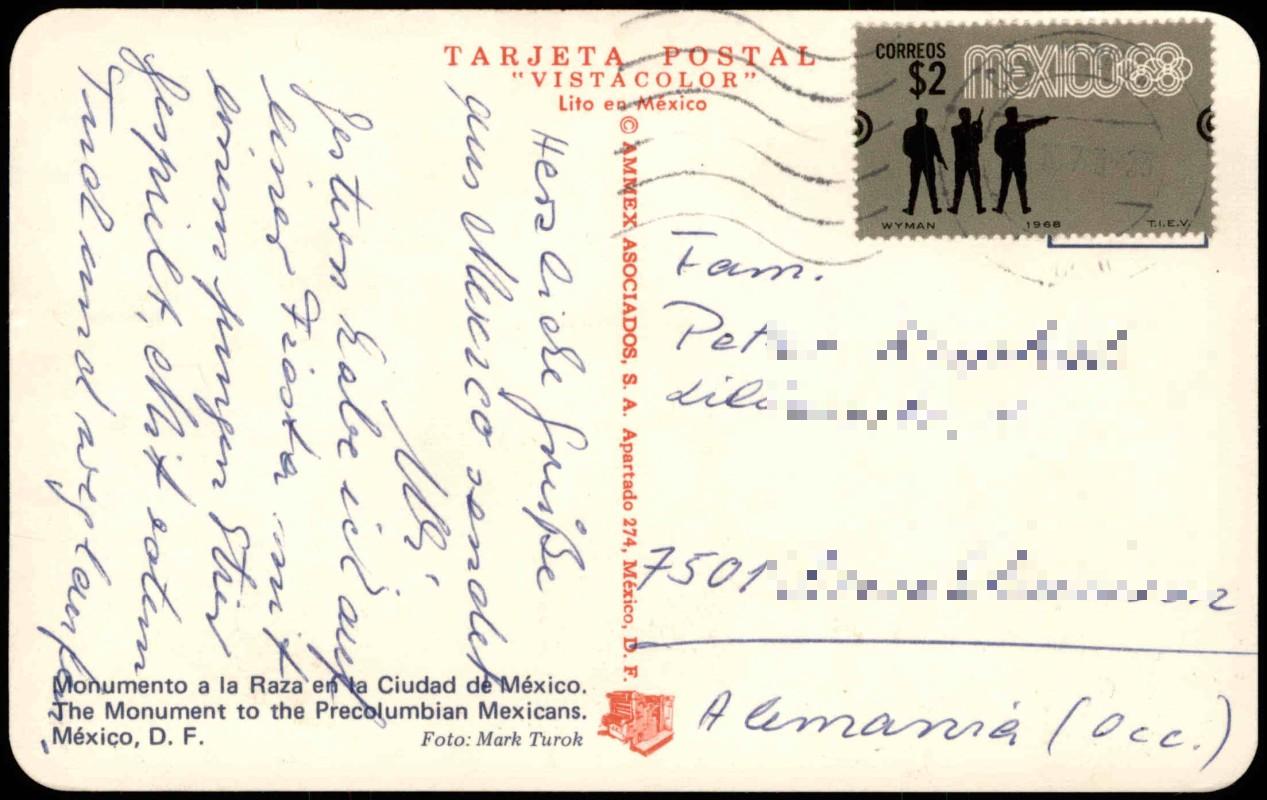 TARJETA POSTAL
"VISTACOLOR"
Lito en México
© AMMEX ASOCIADOS, S. A. Apartado 274, México, D. F.
CORREOS
$2
MEXICO68
WYMAN 1968 T.I.E.V.
Herzliche Grüße
aus Mexico sendet
Uli
Gestern habe ich auf
einer Fiesta mit
einem jungen Stier
gespielt. Mit rotem
Tuch und weglaufen.
Fam.
7501
Alemania (Occ.)
Monumento a la Raza en la Ciudad de México.
The Monument to the Precolumbian Mexicans.
México, D. F.
Foto: Mark Turok